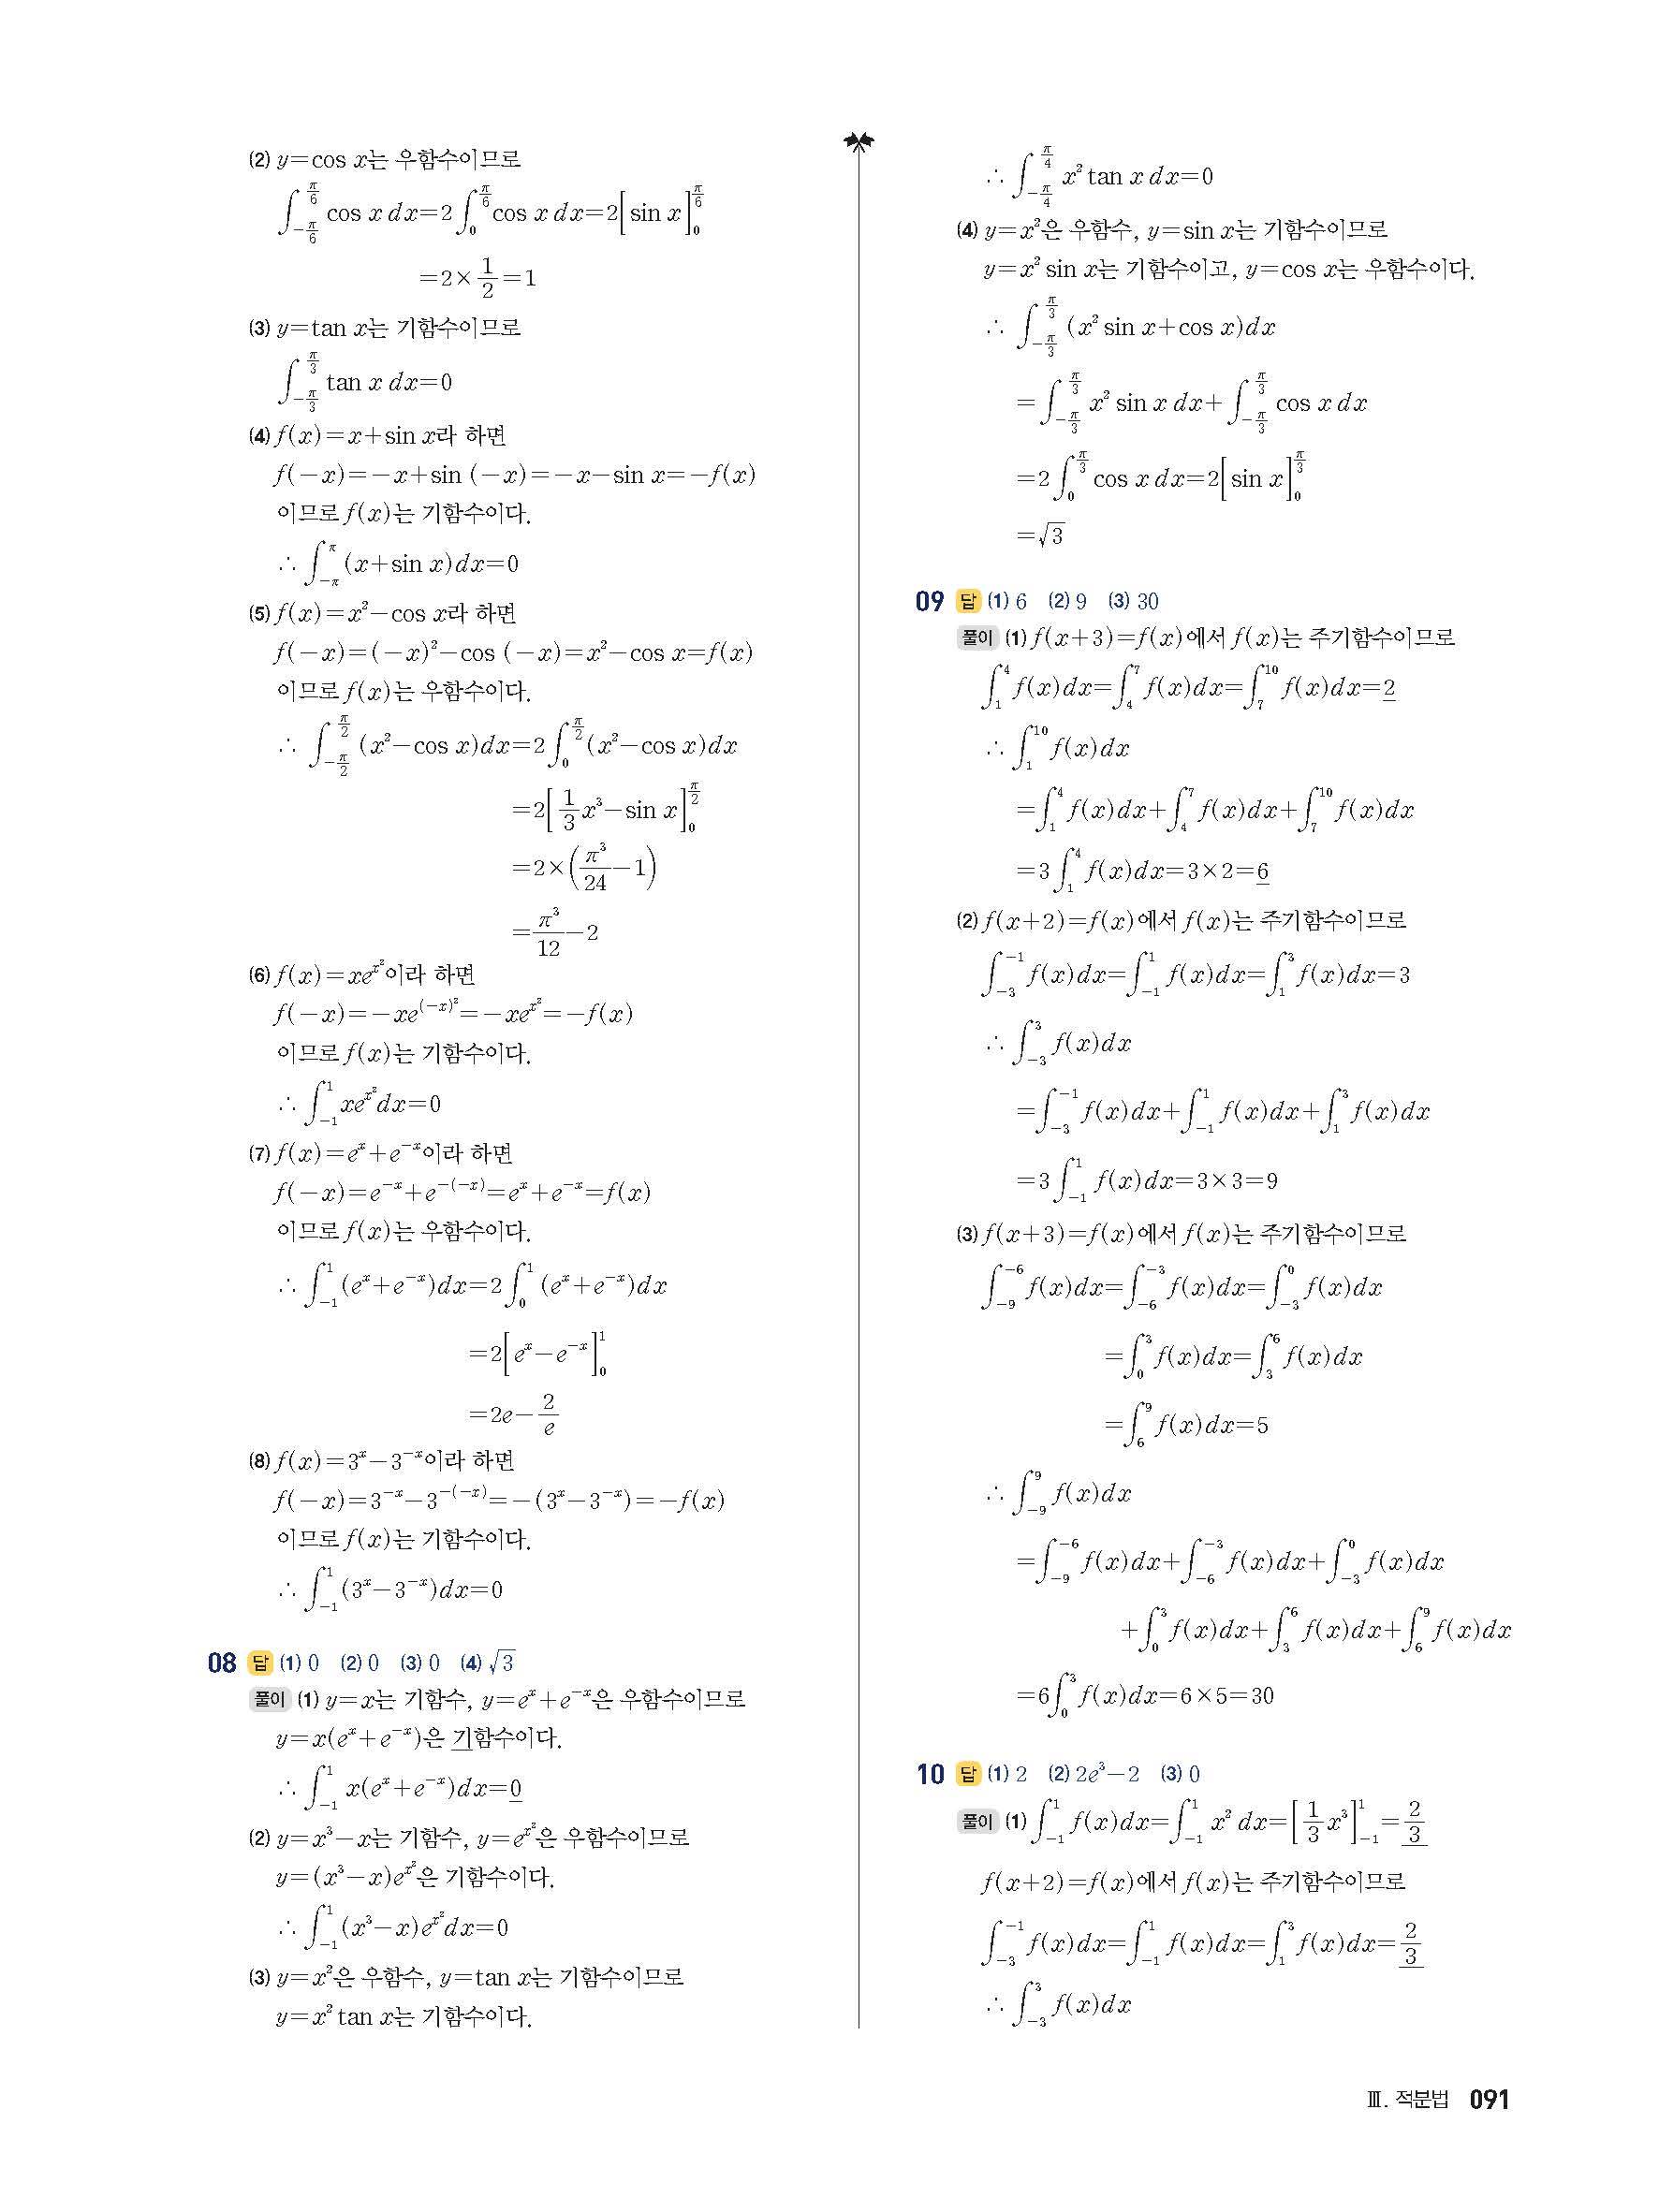 (2) y=cos x는 우함수이므로
∫_{-π/6}^{π/6} cos x dx=2∫_0^{π/6} cos x dx=2[sin x]_0^{π/6}
=2×1/2=1
(3) y=tan x는 기함수이므로
∫_{-π/3}^{π/3} tan x dx=0
(4) f(x)=x+sin x라 하면
f(-x)=-x+sin (-x)=-x-sin x=-f(x)
이므로 f(x)는 기함수이다.
∴ ∫_{-π}^{π} (x+sin x)dx=0
(5) f(x)=x²-cos x라 하면
f(-x)=(-x)²-cos (-x)=x²-cos x=f(x)
이므로 f(x)는 우함수이다.
∴ ∫_{-π/2}^{π/2} (x²-cos x)dx=2∫_0^{π/2} (x²-cos x)dx
=2[1/3 x³-sin x]_0^{π/2}
=2×(π³/24-1)
=π³/12-2
(6) f(x)=xe^{x²}이라 하면
f(-x)=-xe^{(-x)²}=-xe^{x²}=-f(x)
이므로 f(x)는 기함수이다.
∴ ∫_{-1}^{1} xe^{x²}dx=0
(7) f(x)=e^x+e^{-x}이라 하면
f(-x)=e^{-x}+e^{-(-x)}=e^x+e^{-x}=f(x)
이므로 f(x)는 우함수이다.
∴ ∫_{-1}^{1} (e^x+e^{-x})dx=2∫_0^1 (e^x+e^{-x})dx
=2[e^x-e^{-x}]_0^1
=2e-2/e
(8) f(x)=3^x-3^{-x}이라 하면
f(-x)=3^{-x}-3^{-(-x)}=-(3^x-3^{-x})=-f(x)
이므로 f(x)는 기함수이다.
∴ ∫_{-1}^{1} (3^x-3^{-x})dx=0
08 답 (1) 0 (2) 0 (3) 0 (4) √3
풀이 (1) y=x는 기함수, y=e^x+e^{-x}은 우함수이므로
y=x(e^x+e^{-x})은 기함수이다.
∴ ∫_{-1}^{1} x(e^x+e^{-x})dx=0
(2) y=x³-x는 기함수, y=e^{x²}은 우함수이므로
y=(x³-x)e^{x²}은 기함수이다.
∴ ∫_{-1}^{1} (x³-x)e^{x²}dx=0
(3) y=x²은 우함수, y=tan x는 기함수이므로
y=x² tan x는 기함수이다.
∴ ∫_{-π/4}^{π/4} x² tan x dx=0
(4) y=x²은 우함수, y=sin x는 기함수이므로
y=x² sin x는 기함수이고, y=cos x는 우함수이다.
∴ ∫_{-π/3}^{π/3} (x² sin x+cos x)dx
=∫_{-π/3}^{π/3} x² sin x dx+∫_{-π/3}^{π/3} cos x dx
=2∫_0^{π/3} cos x dx=2[sin x]_0^{π/3}
=√3
09 답 (1) 6 (2) 9 (3) 30
풀이 (1) f(x+3)=f(x)에서 f(x)는 주기함수이므로
∫_1^4 f(x)dx=∫_4^7 f(x)dx=∫_7^{10} f(x)dx=2
∴ ∫_1^{10} f(x)dx
=∫_1^4 f(x)dx+∫_4^7 f(x)dx+∫_7^{10} f(x)dx
=3∫_1^4 f(x)dx=3×2=6
(2) f(x+2)=f(x)에서 f(x)는 주기함수이므로
∫_{-3}^{-1} f(x)dx=∫_{-1}^{1} f(x)dx=∫_1^3 f(x)dx=3
∴ ∫_{-3}^{3} f(x)dx
=∫_{-3}^{-1} f(x)dx+∫_{-1}^{1} f(x)dx+∫_1^3 f(x)dx
=3∫_{-1}^{1} f(x)dx=3×3=9
(3) f(x+3)=f(x)에서 f(x)는 주기함수이므로
∫_{-9}^{-6} f(x)dx=∫_{-6}^{-3} f(x)dx=∫_{-3}^{0} f(x)dx
=∫_0^3 f(x)dx=∫_3^6 f(x)dx
=∫_6^9 f(x)dx=5
∴ ∫_{-9}^{9} f(x)dx
=∫_{-9}^{-6} f(x)dx+∫_{-6}^{-3} f(x)dx+∫_{-3}^{0} f(x)dx
+∫_0^3 f(x)dx+∫_3^6 f(x)dx+∫_6^9 f(x)dx
=6∫_0^3 f(x)dx=6×5=30
10 답 (1) 2 (2) 2e³-2 (3) 0
풀이 (1) ∫_{-1}^{1} f(x)dx=∫_{-1}^{1} x² dx=[1/3 x³]_{-1}^{1}=2/3
f(x+2)=f(x)에서 f(x)는 주기함수이므로
∫_{-3}^{-1} f(x)dx=∫_{-1}^{1} f(x)dx=∫_1^3 f(x)dx=2/3
∴ ∫_{-3}^{3} f(x)dx
Ⅲ. 적분법 091